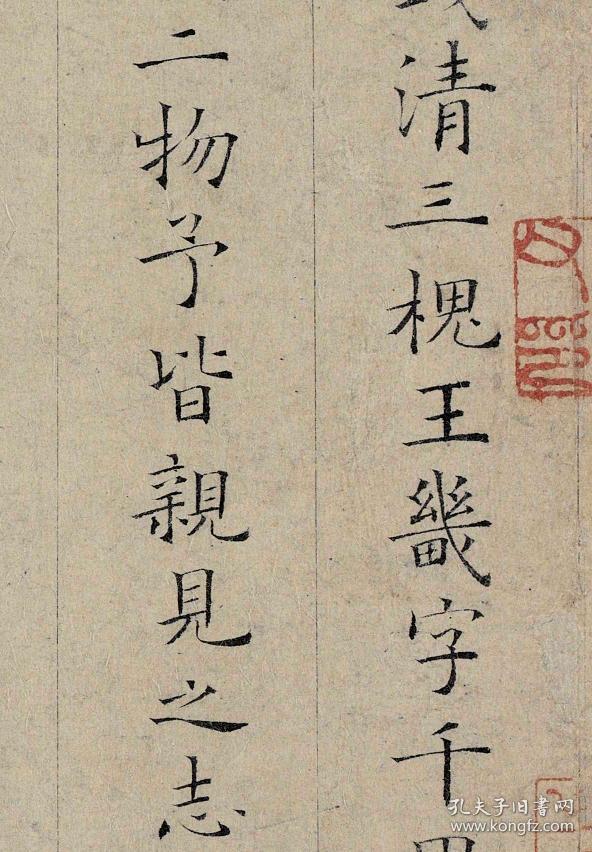 清三槐王畿字千
二物予皆親見之志
孔夫子旧书网
www.kongfz.com